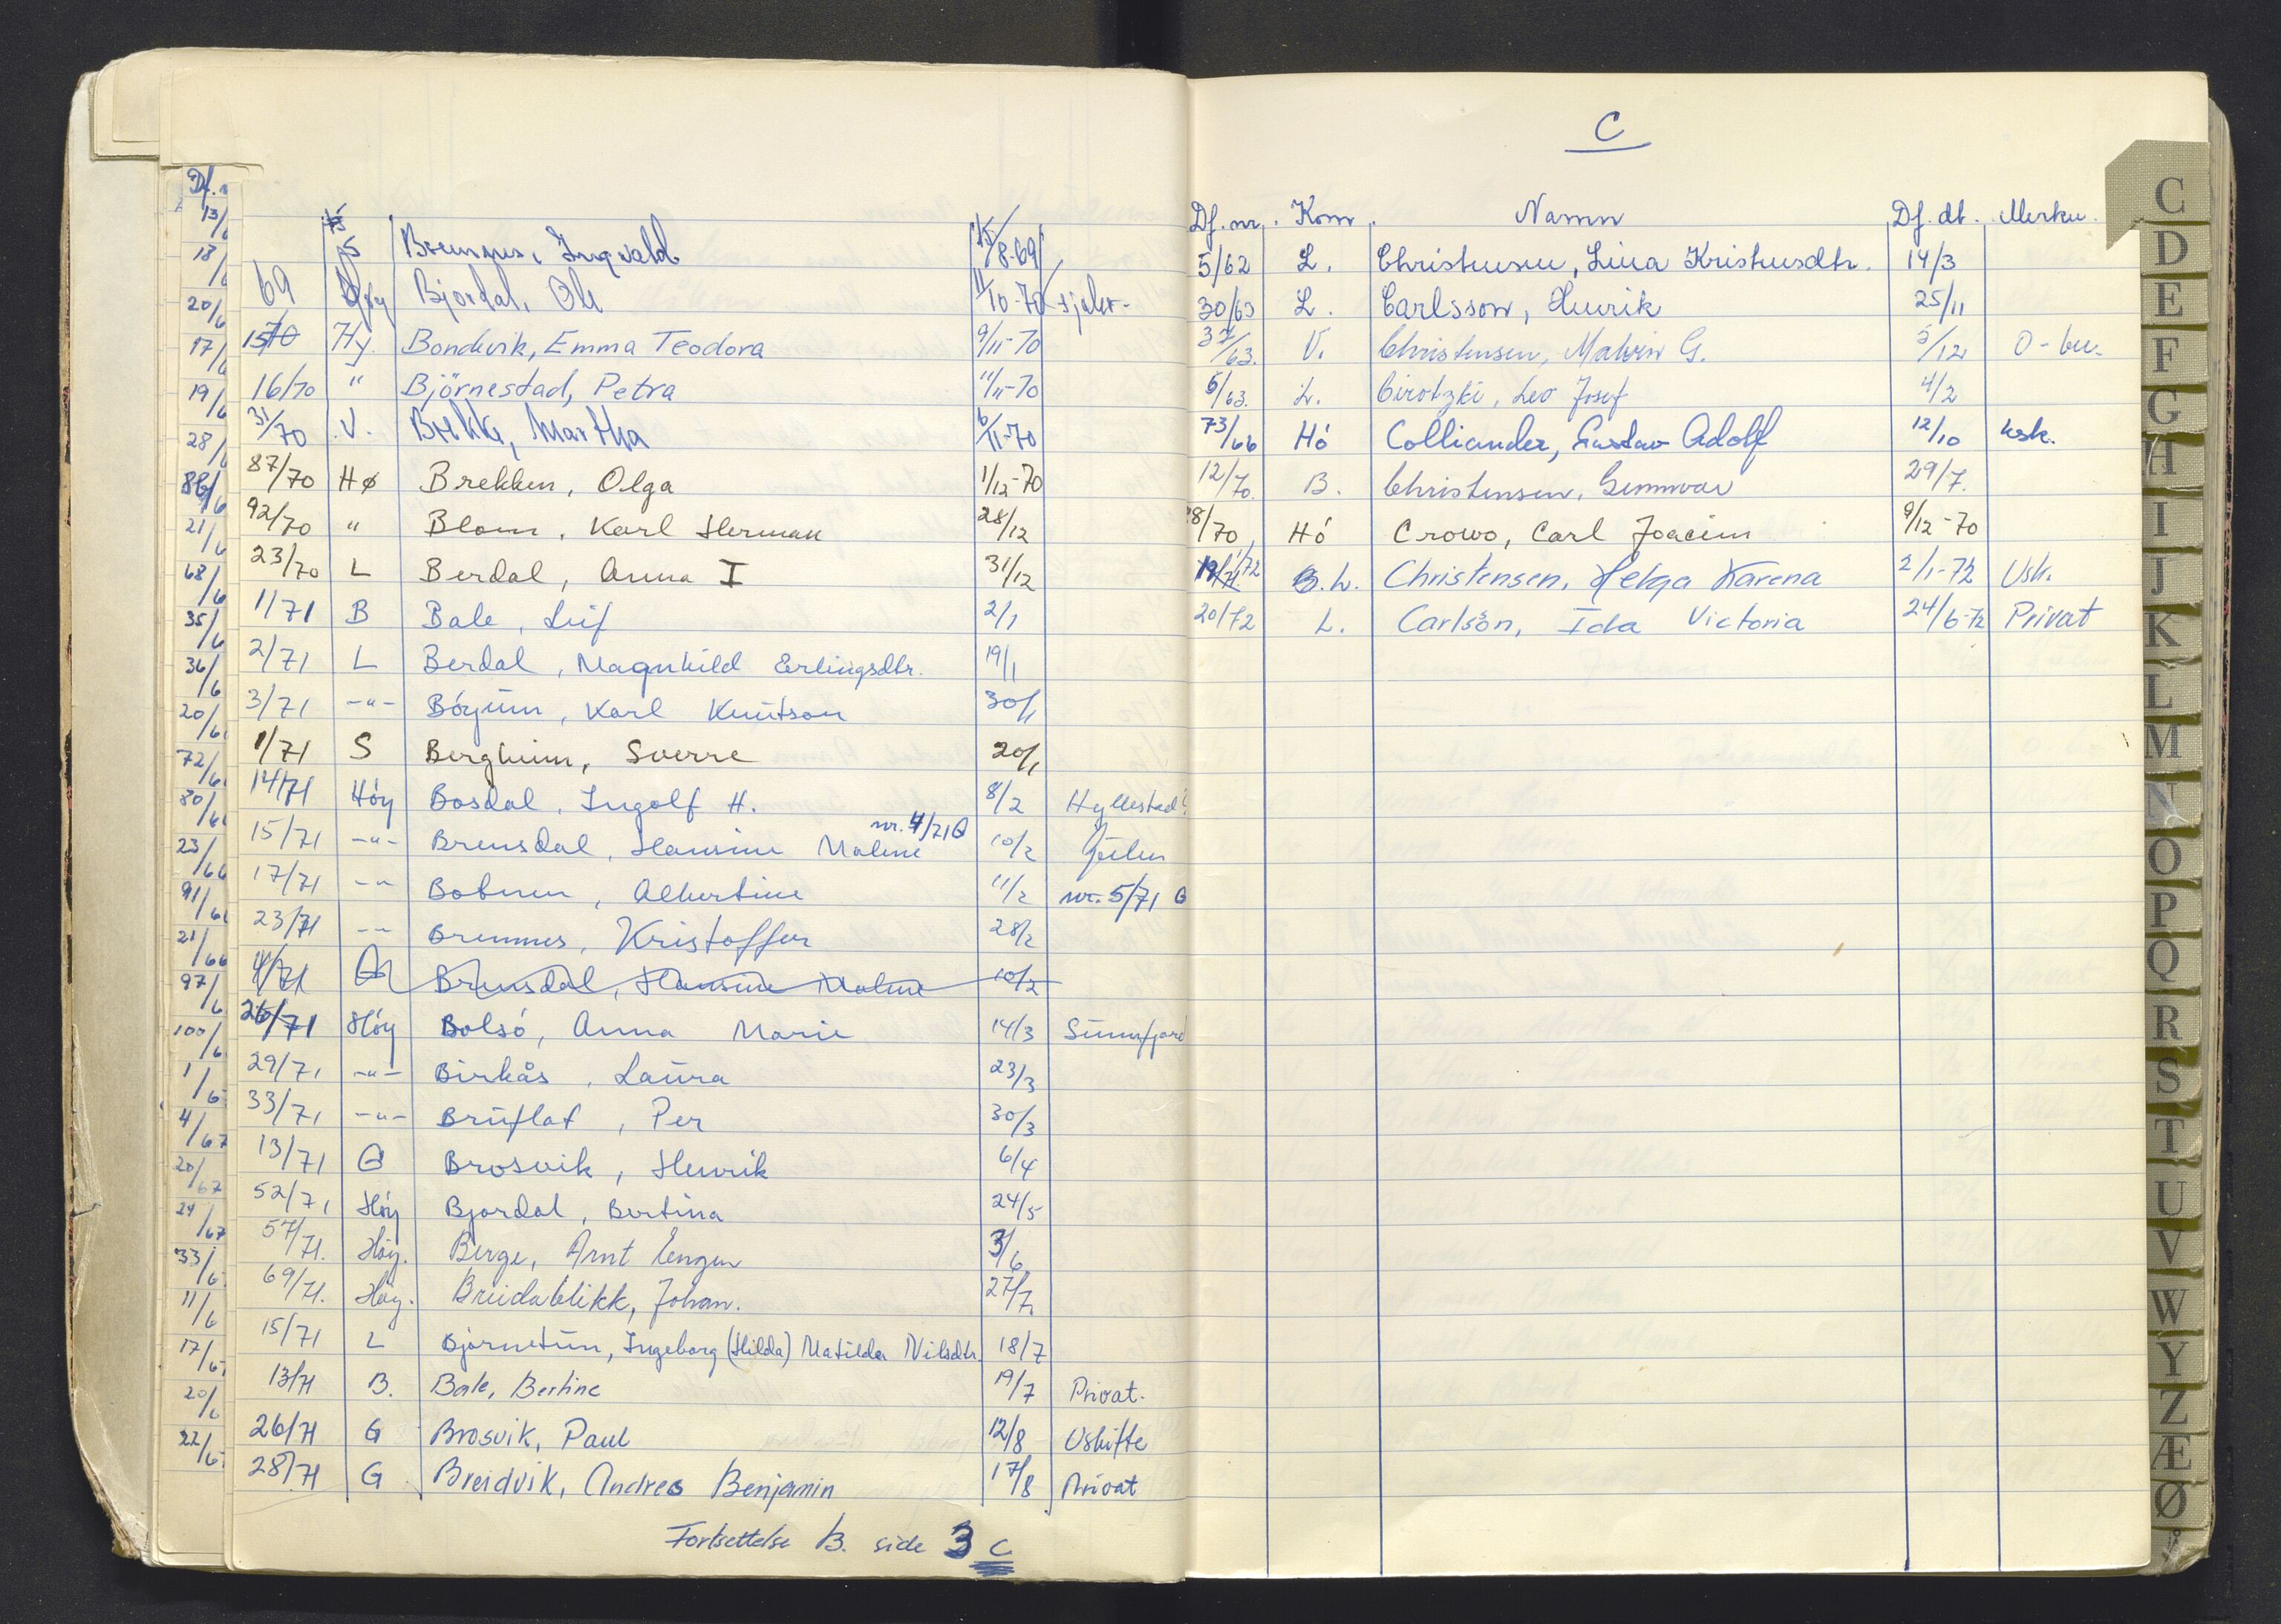 S Bremnes, Ingvald 15/8-69
69 Høy Bjordal, Ole 11/10-70
15/70 Hy. Bondevik, Emma Teodora 9/11-70
16/70 " Björnestad, Petra 11/11-70
31/70 V. Brekke, Martha 6/11-70
87/70 Hø Brekken, Olga 1/12-70
92/70 " Blom, Karl Herman 28/12
23/70 L Berdal, Anna I 31/12
1/71 B Bale, Leif 2/1
2/71 L Berdal, Magnhild Erlingsdtr. 19/1
3/71 -"- Bóyum, Karl Knutson 30/1
1/71 S Bergheim, Sverre 20/1
14/71 Hóy Bosdal, Ingolf H. 8/2 Hyllestad?
nr. 4/71 G
15/71 -"- Brensdal, Hansine Maline 10/2 Gulen
17/71 -"- Botnen, Albertine 11/2 nr. 5/71 G
23/71 -"- Bremnes, Kristoffer 28/2
4/71 G Brensdal, Hansine Maline 10/2
26/71 Hóy Bolsó, Anna Marie 14/3 Sunnfjord
29/71 -"- Birkås, Laura 23/3
33/71 -"- Bruflat, Per 30/3
13/71 G Brosvik, Henrik 6/4
52/71 Hóy Bjordal, Bertina 24/5
57/71. Høy. Berge, Arnt Eugen 3/6
69/71. Høy. Breidablikk, Johan. 27/7
15/71 L Bjørnetun, Ingeborg (Hilda) Matilda Nilsdtr. 18/7
13/71 B. Bale, Bertine 19/7 Privat.
26/71 G Brosvik, Paul 12/8 Uskifte
28/71 G Breidvik, Andreas Benjamin 17/8 Privat
Fortsettelse B. side 3 C
C
Df. nr. Kom. Namn Df. dt. Merkn.
5/62 L. Christensen, Lina Kristensdtr. 14/3
30/63 L. Carlsson, Henrik 25/11
37/63. V. Christensen, Malvin G. 5/12 O-bu.
6/63. L. Cirotzki, Leo Josef 4/2
73/66 Hó Colliander, Gustav Adolf 12/10 usk.
12/70. B. Christensen, Gunnvor 29/7.
88/70 Hó Crowo, Carl Joacim 9/12-70
1/72 B.L. Christensen, Helga Karena 2/1-72 Usk.
20/72 L. Carlson, Ida Victoria 24/6-72 Privat
C
D
E
F
G
H
I
J
K
L
M
N
O
P
Q
R
S
T
U
V
W
Y
Z
Æ
Ø
Å